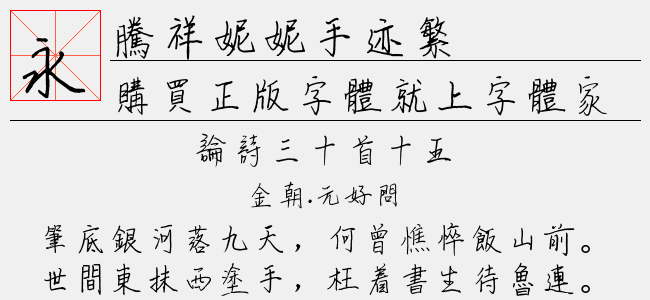 永
騰祥妮妮手迹繁
購買正版字體就上字體家
論詩三十首十五
金朝.元好問
筆底銀河落九天，何曾憔悴飯山前。
世間東抹西塗手，枉着書生待魯連。